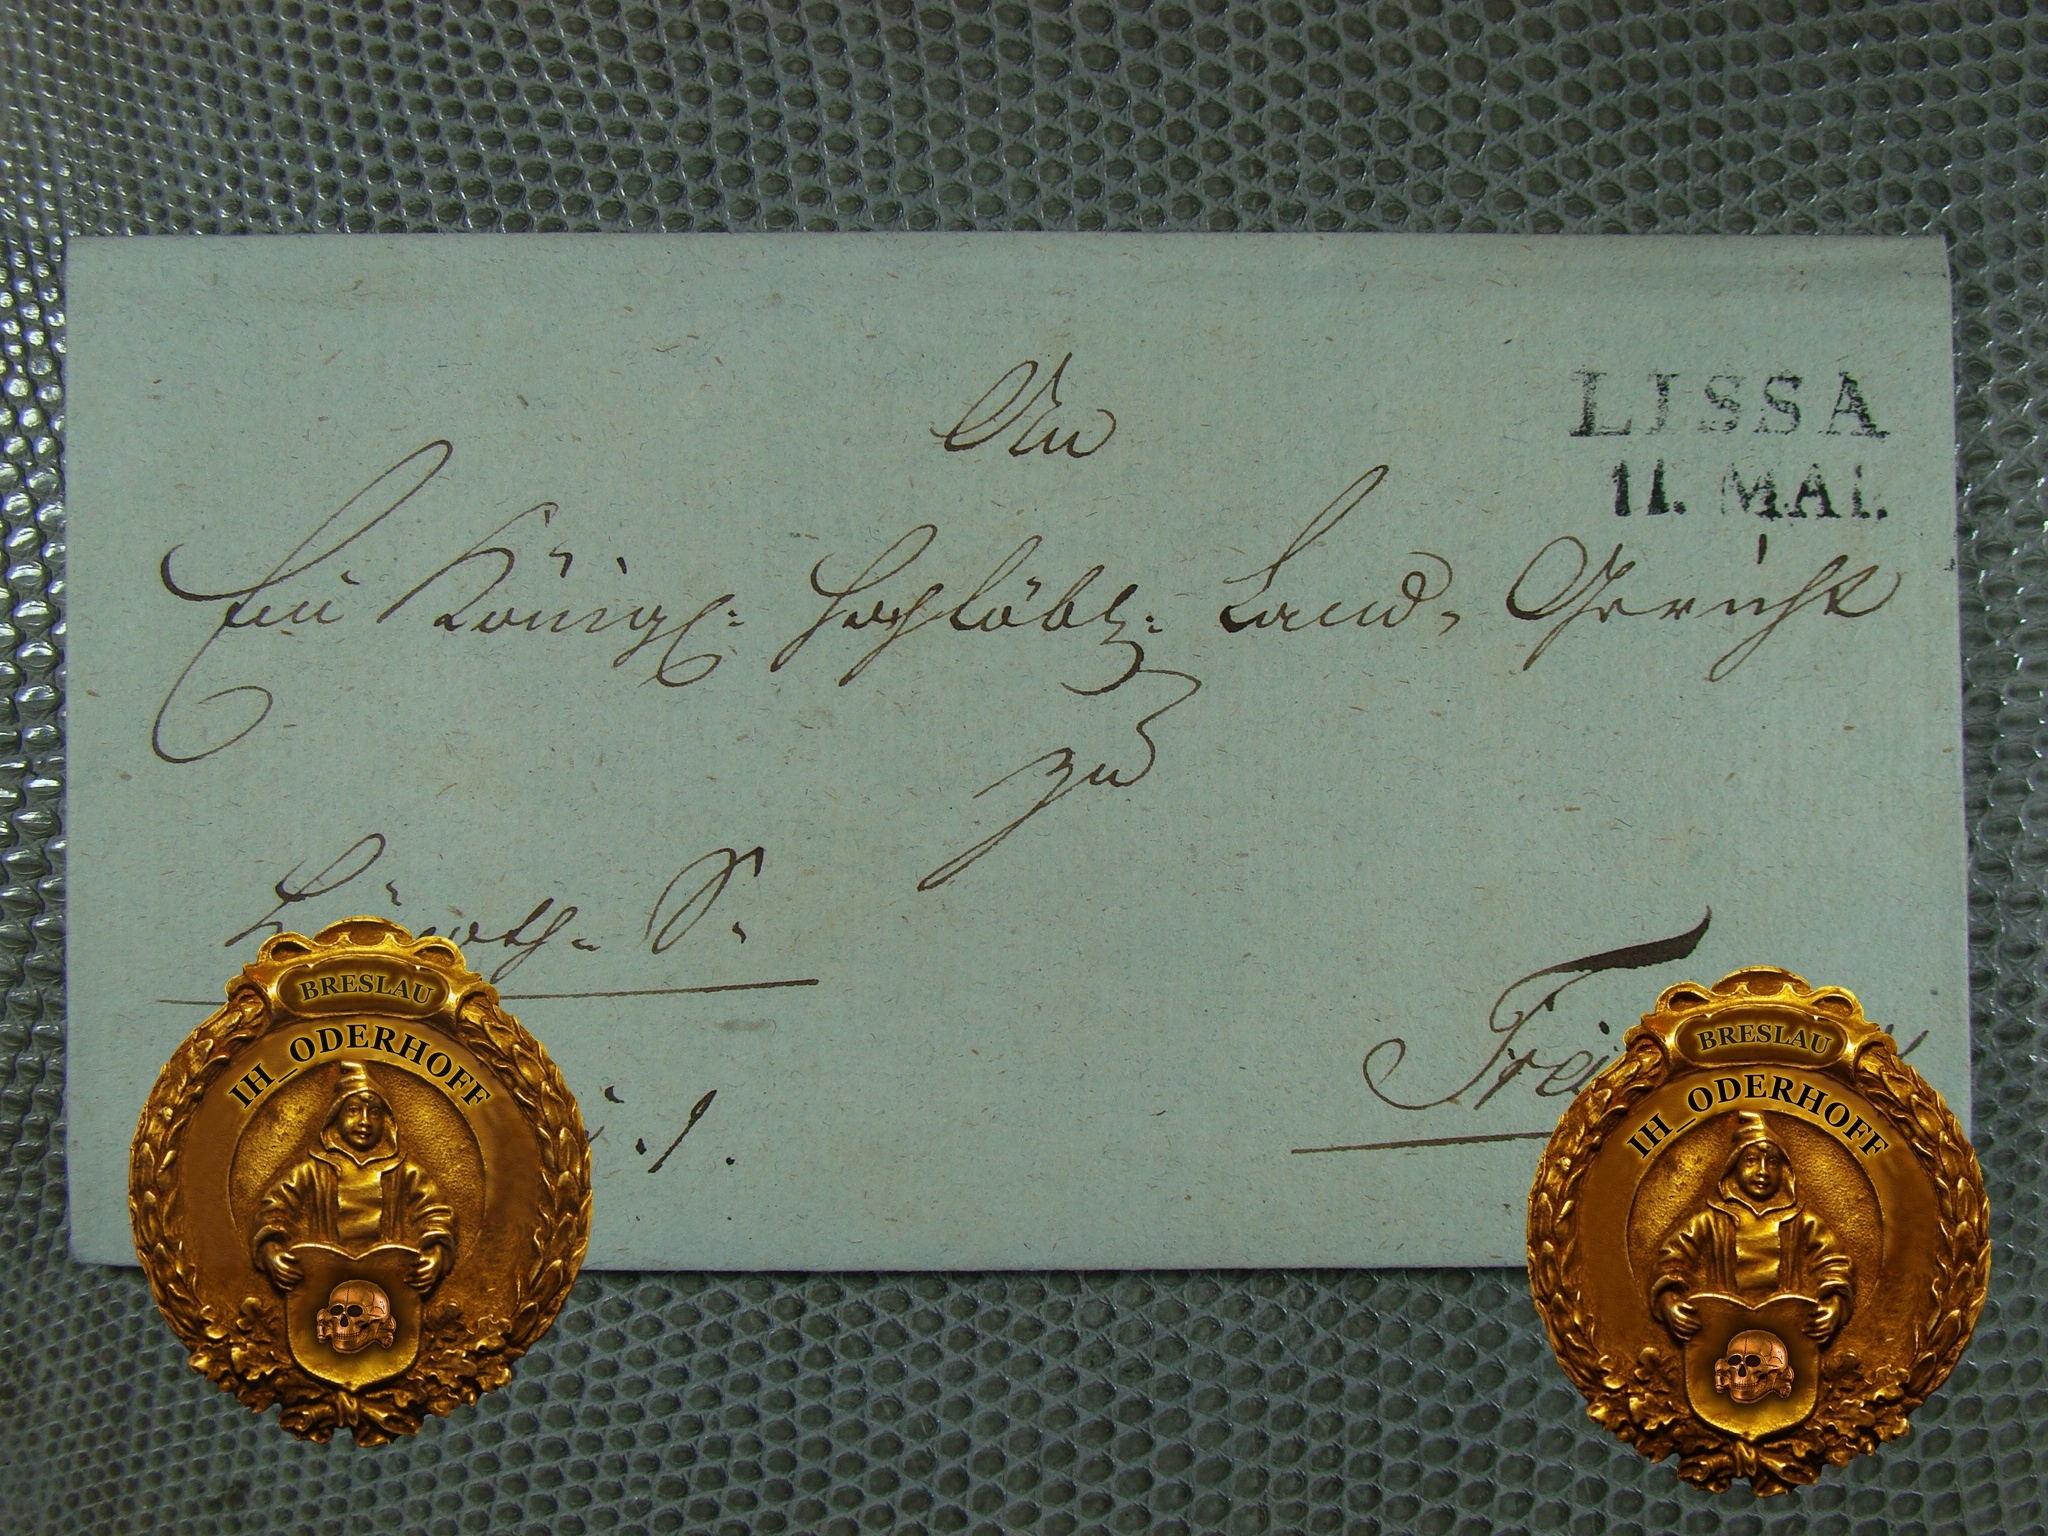 LISSA
11. MAI.
An
Ein Königl: Hochlöbl: Land, Gericht
zu
S.
Frei
.1.
BRESLAU
IH_ODERHOFF
BRESLAU
IH_ODERHOFF